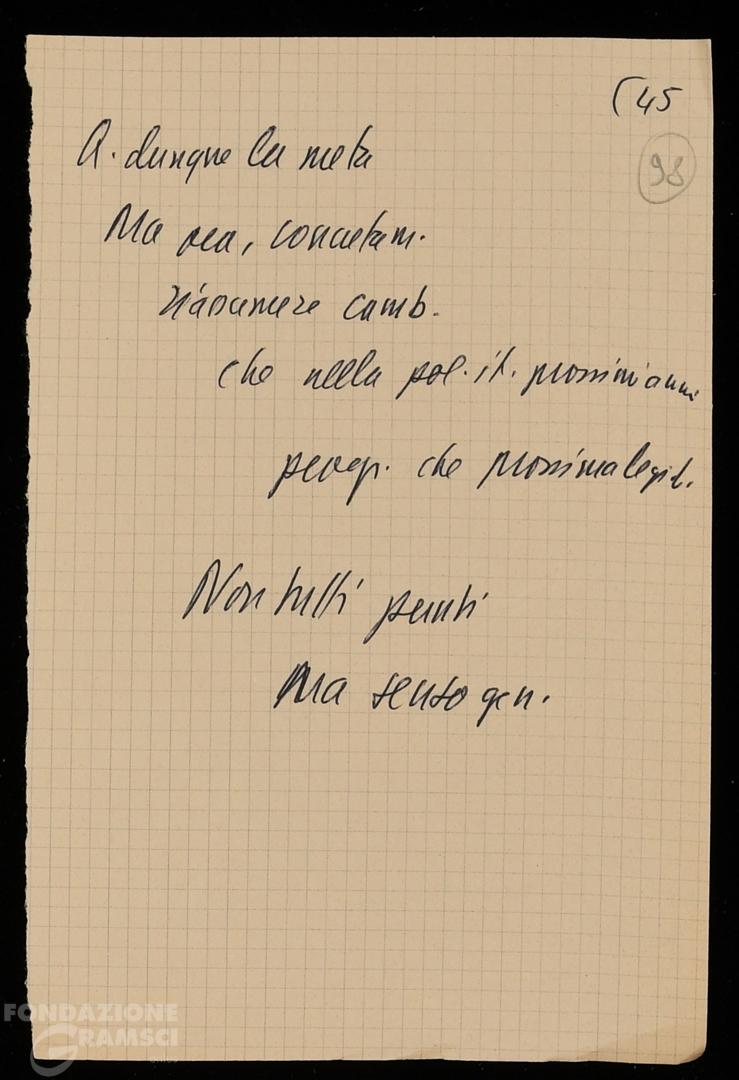 (45
98
Q. dunque la meta
Ma ora, concretam.
Riassumere camb.
che nella pol. it. prossimi anni
perogr. che prossima legisl.
Non tutti punti
Ma senso gen.
FONDAZIONE
GRAMSCI